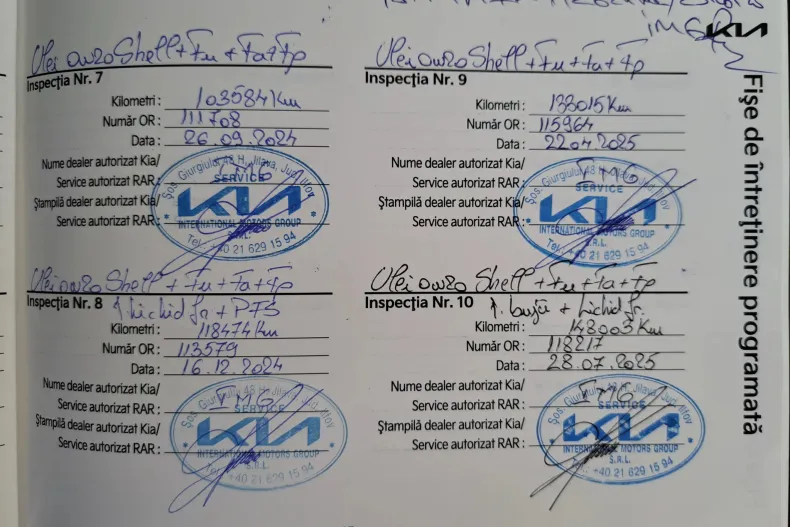 KIA
IMG
Fișe de întreținere programată
Ulei 0W20 Shell + Fu + Fa + Fp
Inspecția Nr. 7
Kilometri: 103584 Km
Număr OR: 111708
Data: 26.09.2024
Nume dealer autorizat Kia/
Service autorizat RAR: IMG
Ștampilă dealer autorizat Kia/
Service autorizat RAR:
Șos. Giurgiului 48 H, Jilava, Jud. Ilfov
SERVICE
KIA
INTERNATIONAL MOTORS GROUP
S.R.L.
Tel.: +40 21 629 15 94
Ulei 0W20 Shell + Fu + Fa + Fp
Inspecția Nr. 8
lichid fr + PTS
Kilometri: 118474 Km
Număr OR: 113579
Data: 16.12.2024
Nume dealer autorizat Kia/
Service autorizat RAR: IMG
Ștampilă dealer autorizat Kia/
Service autorizat RAR:
Șos. Giurgiului 48 H, Jilava, Jud. Ilfov
SERVICE
KIA
INTERNATIONAL MOTORS GROUP
S.R.L.
Tel.: +40 21 629 15 94
Ulei 0W20 Shell + Fu + Fa + Fp
Inspecția Nr. 9
Kilometri: 133015 Km
Număr OR: 115964
Data: 22.04.2025
Nume dealer autorizat Kia/
Service autorizat RAR: IMG
Ștampilă dealer autorizat Kia/
Service autorizat RAR:
Șos. Giurgiului 48 H, Jilava, Jud. Ilfov
SERVICE
KIA
INTERNATIONAL MOTORS GROUP
S.R.L.
Tel.: +40 21 629 15 94
Ulei 0W20 Shell + Fu + Fa + Fp
Inspecția Nr. 10
bujii + lichid fr.
Kilometri: 148003 Km
Număr OR: 118217
Data: 28.07.2025
Nume dealer autorizat Kia/
Service autorizat RAR: IMG
Ștampilă dealer autorizat Kia/
Service autorizat RAR:
Șos. Giurgiului 48 H, Jilava, Jud. Ilfov
SERVICE
KIA
INTERNATIONAL MOTORS GROUP
S.R.L.
Tel.: +40 21 629 15 94